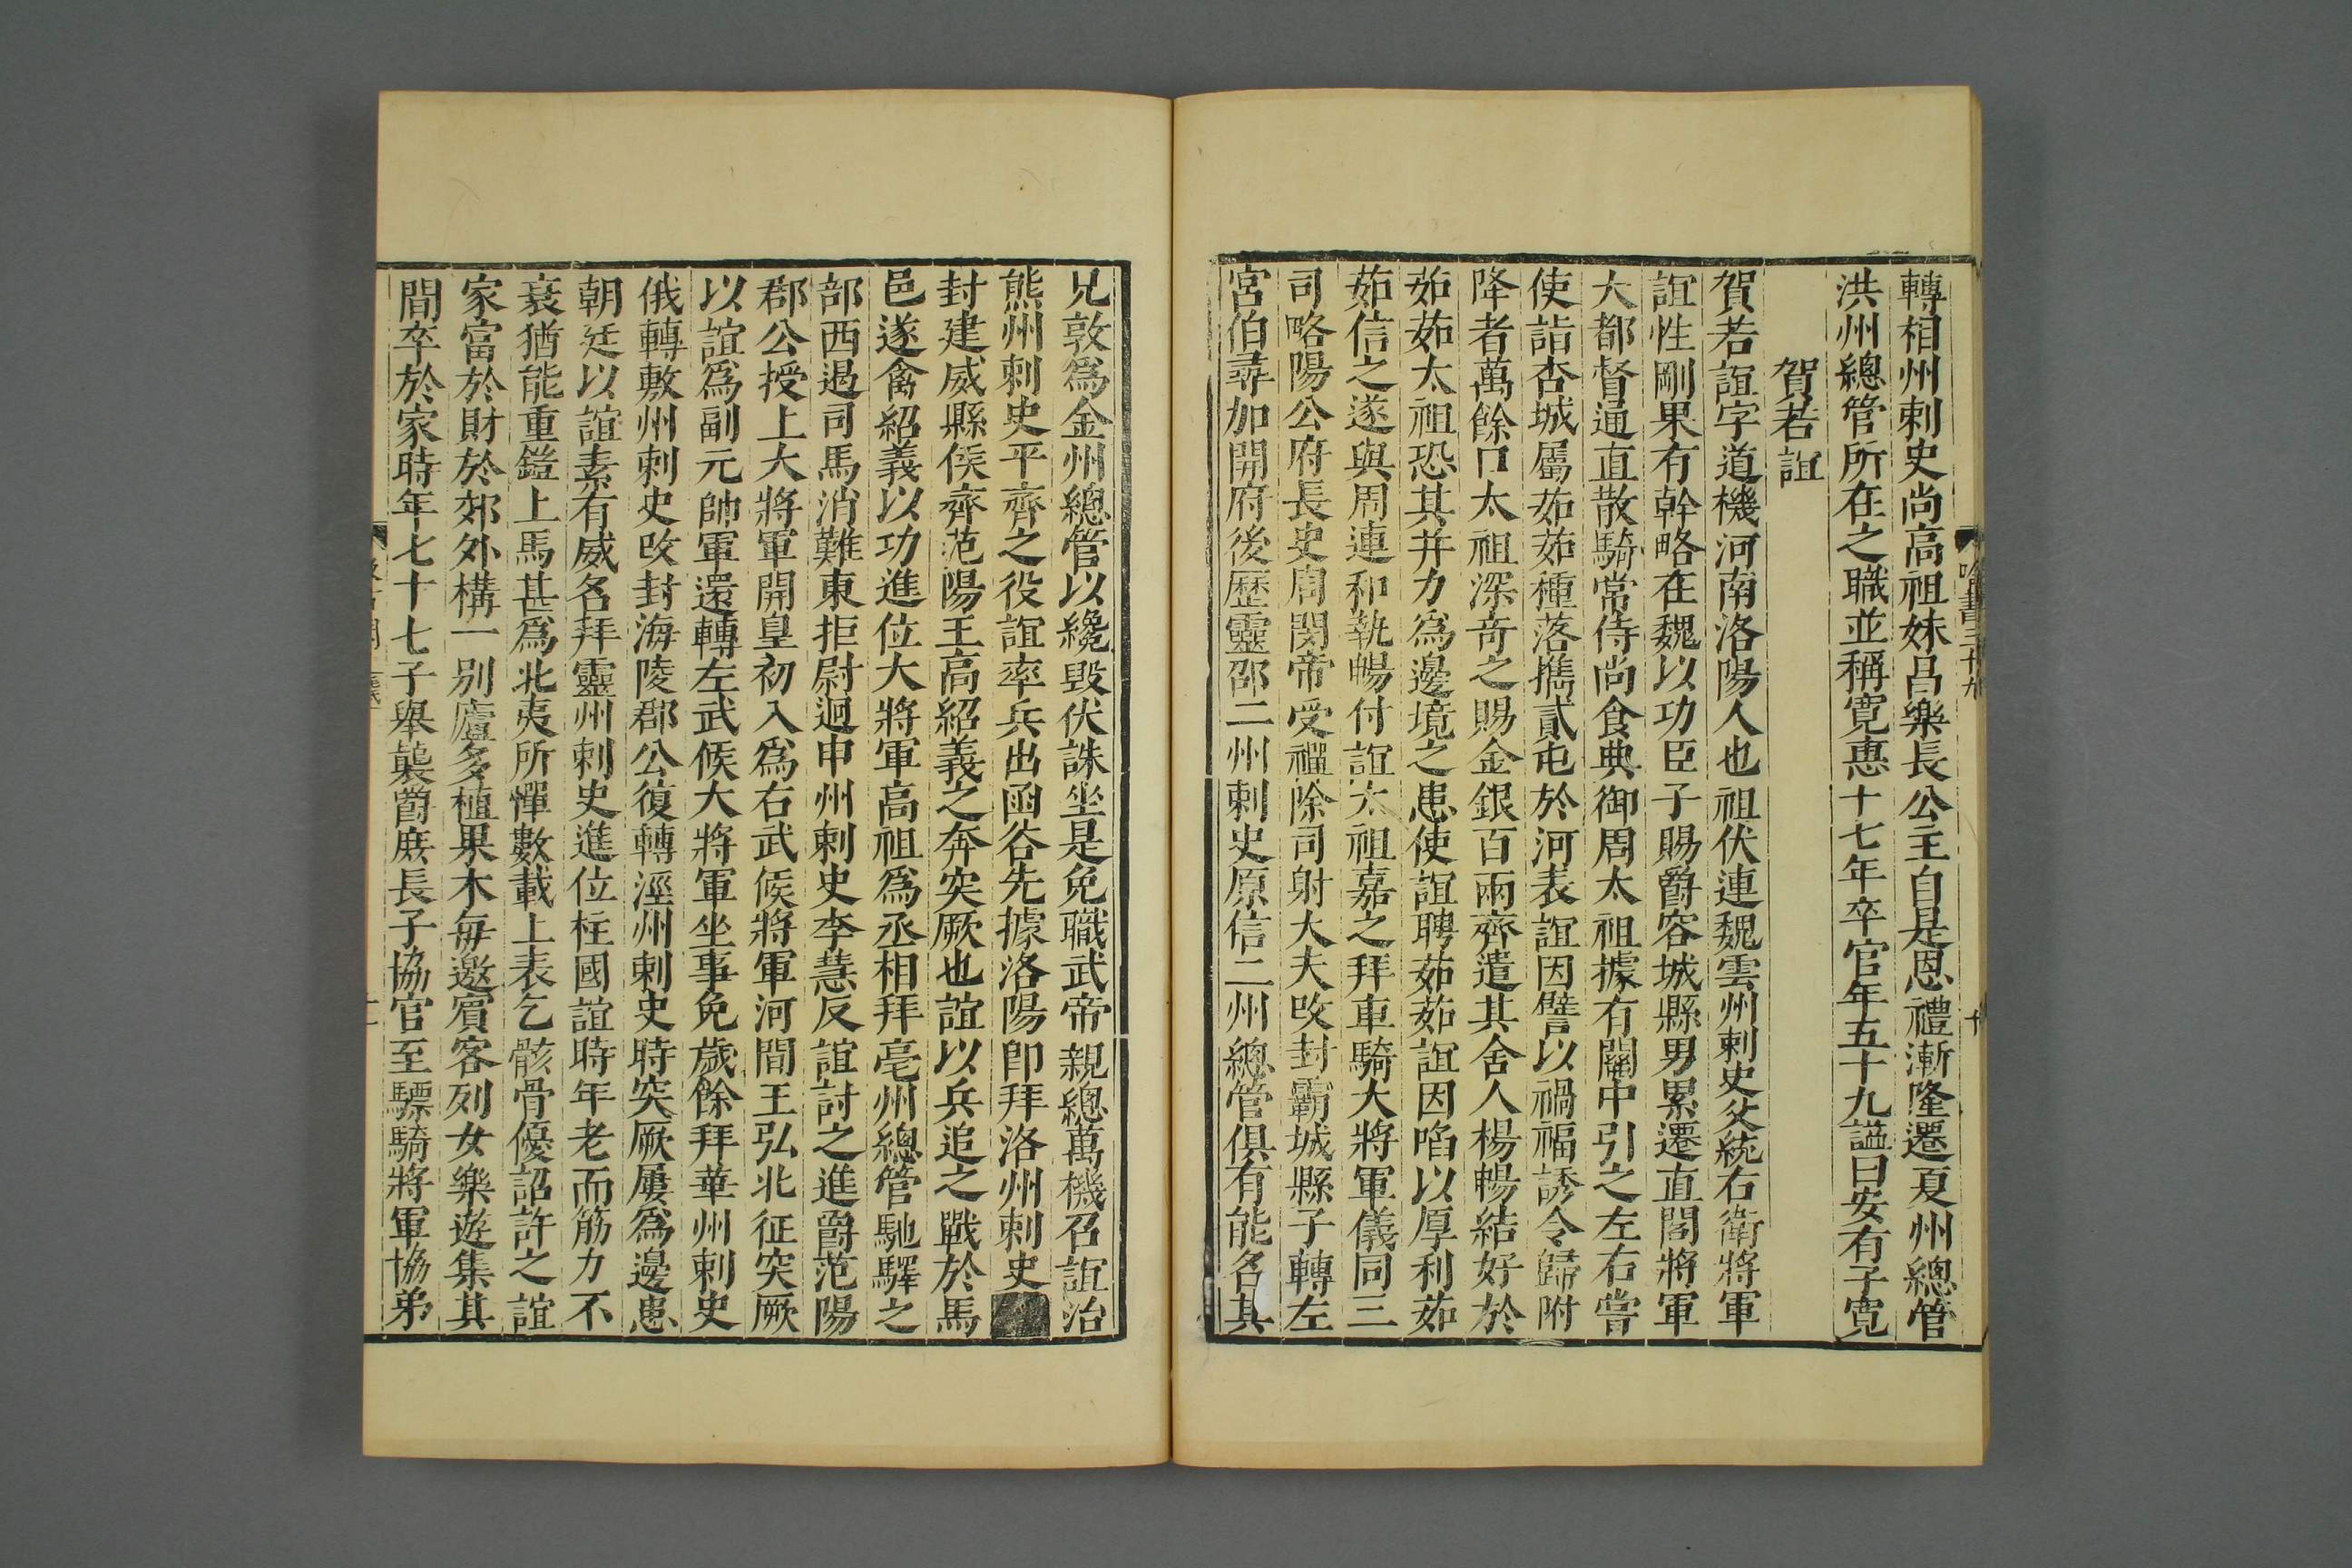 轉相州刺史尚高祖妹昌樂長公主自是恩禮漸隆遷夏州總管
洪州總管所在之職並稱寬惠十七年卒官年五十九謚曰安有子寬
賀若誼
賀若誼字道機河南洛陽人也祖伏連魏雲州刺史父統右衛將軍
誼性剛果有幹略在魏以功臣子賜爵容城縣男累遷直閤將軍
大都督通直散騎常侍尚食典御周太祖據有關中引之左右嘗
使詣杏城屬茹茹種落攜貳屯於河表誼因譬以禍福誘令歸附
降者萬餘口太祖深奇之賜金銀百兩齊遣其舍人楊暢結好於
茹茹太祖恐其并力爲邊境之患使誼聘茹茹誼因啗以厚利茹
茹信之遂與周連和執暢付誼太祖嘉之拜車騎大將軍儀同三
司略陽公府長史周閔帝受禪除司射大夫攺封霸城縣子轉左
宮伯尋加開府後歴靈邵二州刺史原信二州總管俱有能名其
兄敦爲金州總管以讒毀伏誅坐是免職武帝親總萬機召誼治
熊州刺史平齊之役誼率兵出函谷先據洛陽卽拜洛州刺史
封建威縣侯齊范陽王高紹義之奔突厥也誼以兵追之戰於馬
邑遂禽紹義以功進位大將軍高祖爲丞相拜亳州總管馳驛之
部西遏司馬消難東拒尉迥申州刺史李慧反誼討之進爵范陽
郡公授上大將軍開皇初入爲右武候將軍河間王弘北征突厥
以誼爲副元帥軍還轉左武候大將軍坐事免歲餘拜華州刺史
俄轉敷州刺史攺封海陵郡公復轉涇州刺史時突厥屢爲邊患
朝廷以誼素有威名拜靈州刺史進位柱國誼時年老而筋力不
衰猶能重鎧上馬甚爲北夷所憚數載上表乞骸骨優詔許之誼
家富於財於郊外構一別廬多植果木每邀賓客列女樂遊集其
間卒於家時年七十七子舉襲爵庶長子協官至驃騎將軍協弟